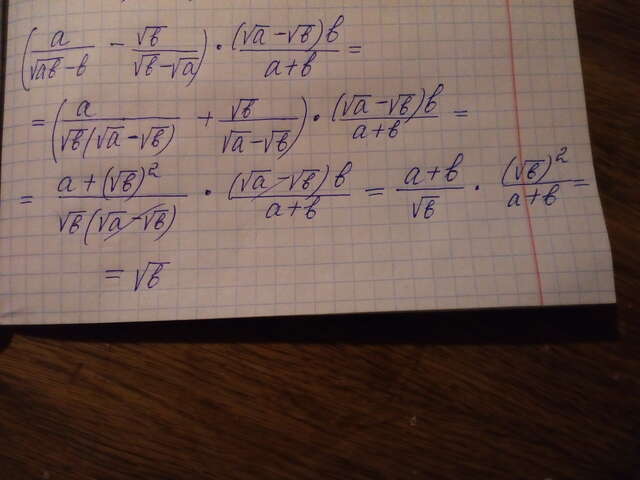 (a/(√ab − b) − √b/(√b − √a)) · (√a − √b)b/(a + b) =
= (a/(√b(√a − √b)) + √b/(√a − √b)) · (√a − √b)b/(a + b) =
= (a + (√b)²)/(√b(√a − √b)) · (√a − √b)b/(a + b) = (a + b)/√b · (√b)²/(a + b) =
= √b